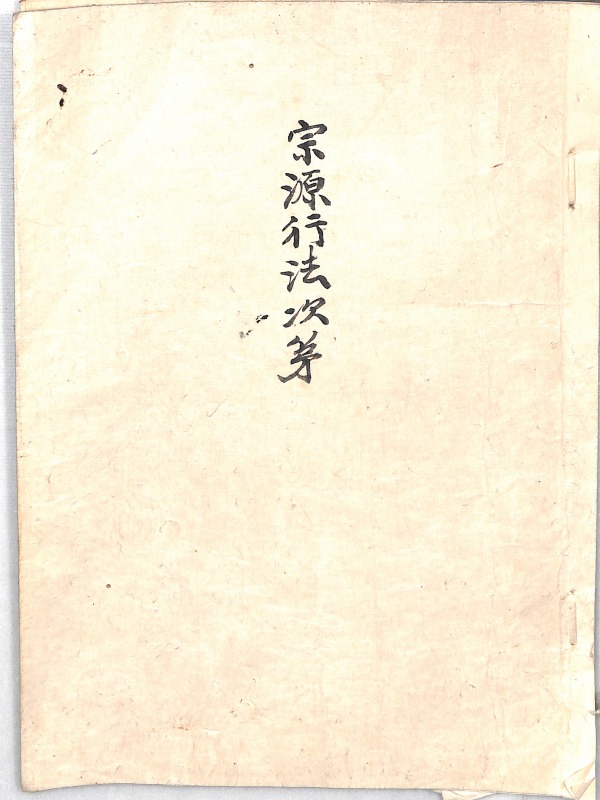 宗源行法次第